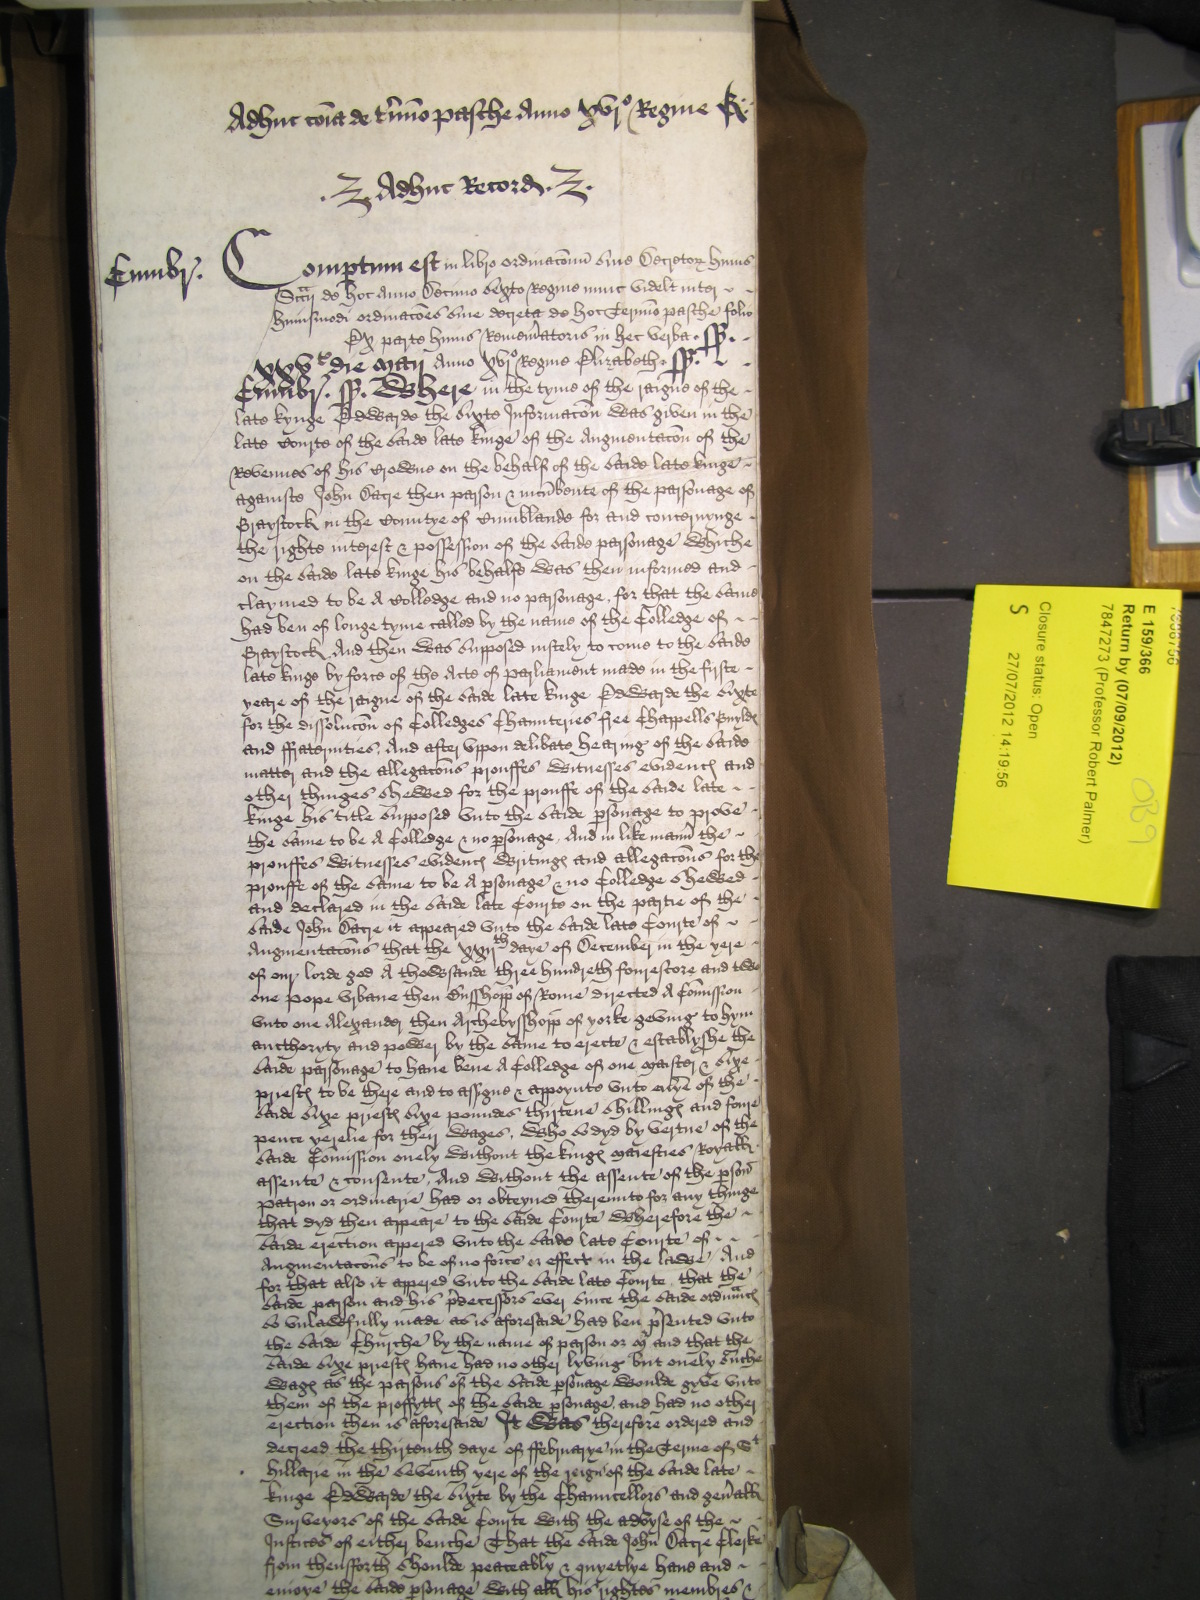 Adhuc coia de termino pasche Anno xvjo Regine R
Adhuc Record
Cumbr. Comptum est in libro ordinaconum sive Decretor huius
Sccij de hoc Anno Decimo sexto Regine nunc videlt inter
huiusmodi ordinaciones sive decreta de hoc Termino pasche folio
Ex parte huius Rememoratoris in hec verba. ss.
xxvto die maij Anno xvjo Regine Elizabeth. ss.
Cumbr. ss. Where in the tyme of the raigne of the
late kynge Edwarde the sixte Informacon was given in the
late Courte of the saide late kinge of the Augmentacon of the
Revenues of his Crowne on the behalf of the saide late kinge
againste John Dacre then parson & incumbente of the parsonage of
Graystock in the Countye of Cumblande for and concernynge
the righte interest & possession of the saide parsonage Whiche
on the saide late kinge his behalfe was then informed and
claymed to be A Colledge and no parsonage, for that the same
had ben of longe tyme called by the name of the Colledge of
Graystock And then was supposed iustely to come to the saide
late kinge by force of the Acte of parliament made in the firste
yeare of the raigne of the saide late kinge Edwarde the sixte
for the dissolucon of Colledges Chaunteries free Chappells Guyldes
and ffraternities, And after uppon delibate hearing of the saide
matter and the allegacons prouffes witnesses evidences and
other thinges shewed for the prouffe of the saide late
kinge his title supposed unto the saide psonage to prove
the same to be A Colledge & no psonage, And in like manner the
prouffes witnesses evidences writinges and allegacons for the
prouffe of the same to be A psonage & no Colledge shewed
and declared in the saide late Courte on the partie of the
saide John Dacre it appeared unto the saide late Courte of
Augmentacons that the daye of December in the yere
of our lorde god A thowsande three hundreth fourescore and two
one Pope Urbane then Busshopp of Rome directed A Comission
unto one Alexander then Archebysshopp of yorke geving to hym
aucthoryty and power by the same to erecte & establyshe the
saide parsonage to have bene A Colledge of one maister & sixe
priestes to be there and to assigne & appoynte unto every of the
saide sixe priestes sixe poundes thirtene shillinges and foure
pence yerelie for their wages, Who so dyd by vertue of the
saide Comission onely without the kinges maiesties Royall
assente & consente, And without the assente of the pson
patron or ordinarie had or obteyned thereunto for any thinge
that dyd then appeare to the saide Courte Wherefore the
saide erection appered unto the saide late Courte of
Augmentacons to be of no force or effect in the lawe And
for that also it appered unto the saide late Courte, that the
saide parson and his pdecessors ever since the saide
so unlawfully made as is aforesaide had ben psented unto
the saide Churche by the name of parson or and that the
saide sixe priestes have had no other lyving but onely suche
wages as the parsons of the saide psonage woulde gyve unto
them of the proffyttes of the saide psonage, and had no other
erection then is aforesaide It was therefore ordered and
decreed the thirtenth daye of ffebruarye in the Terme of St
hillarie in the seventh yere of the reign of the saide late
kinge Edwarde the sixte by the Chauncellors and generall
Surveyors of the saide Courte with the advyse of the
Justices of either benche That the saide John Dacre Clerke
from thensforth shoulde peaceably & quyetlye have and
enioye the saide psonage with all his rightes membres &
1838756
E 159/366
Return by (07/09/2012)
7847273 (Professor Robert Palmer)
Closure status: Open
S 27/07/2012 14:19:56